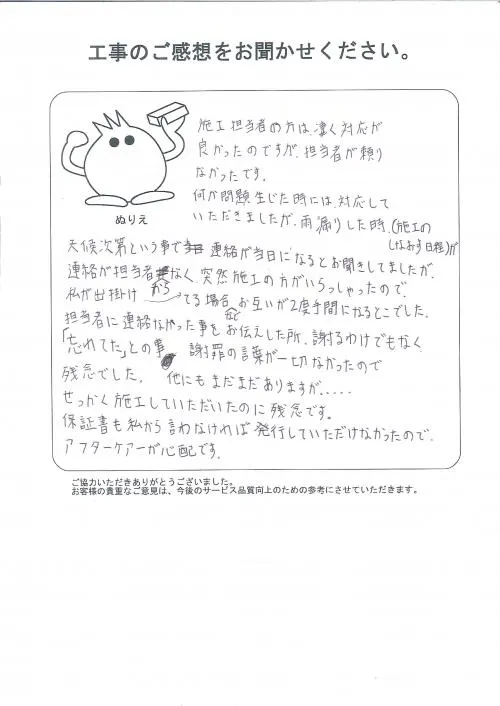 工事のご感想をお聞かせください。
施工担当者の方は、凄く対応が
良かったのですが、担当者が頼り
なかったです。
何か問題生じた時には、対応して
いただきましたが、雨漏りした時、(施工の
しなおす日程)が
ぬりえ
天候次第という事で 連絡が当日になるとお聞きしてましたが、
連絡が担当者なく、突然施工の方がいらっしゃったので、
私が出掛けてる場合、お互いが2度手間になるとこでした。
から
担当者に連絡なかった事をお伝えした所、謝るわけでもなく
「忘れてた」との事 謝罪の言葉が一切なかったので
残念でした。 他にもまだまだありますが.....
せっかく施工していただいたのに残念です。
保証書も私から言わなければ発行していただけなかったので、
アフターケアーが心配です。
ご協力いただきありがとうございました。
お客様の貴重なご意見は、今後のサービス品質向上のための参考にさせていただきます。